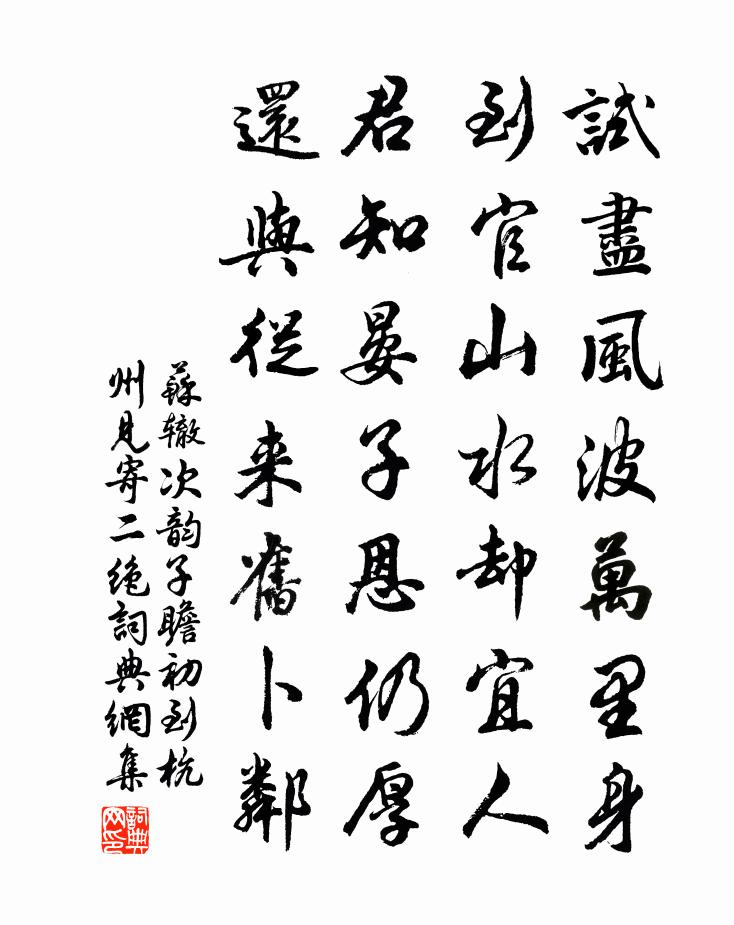 試盡風波萬里身
到官山水却宜人
君知晏子恩仍厚
還與從来舊卜鄰
蘇辙次韵子瞻初到杭
州見寄二绝詞典網集
詞典网印